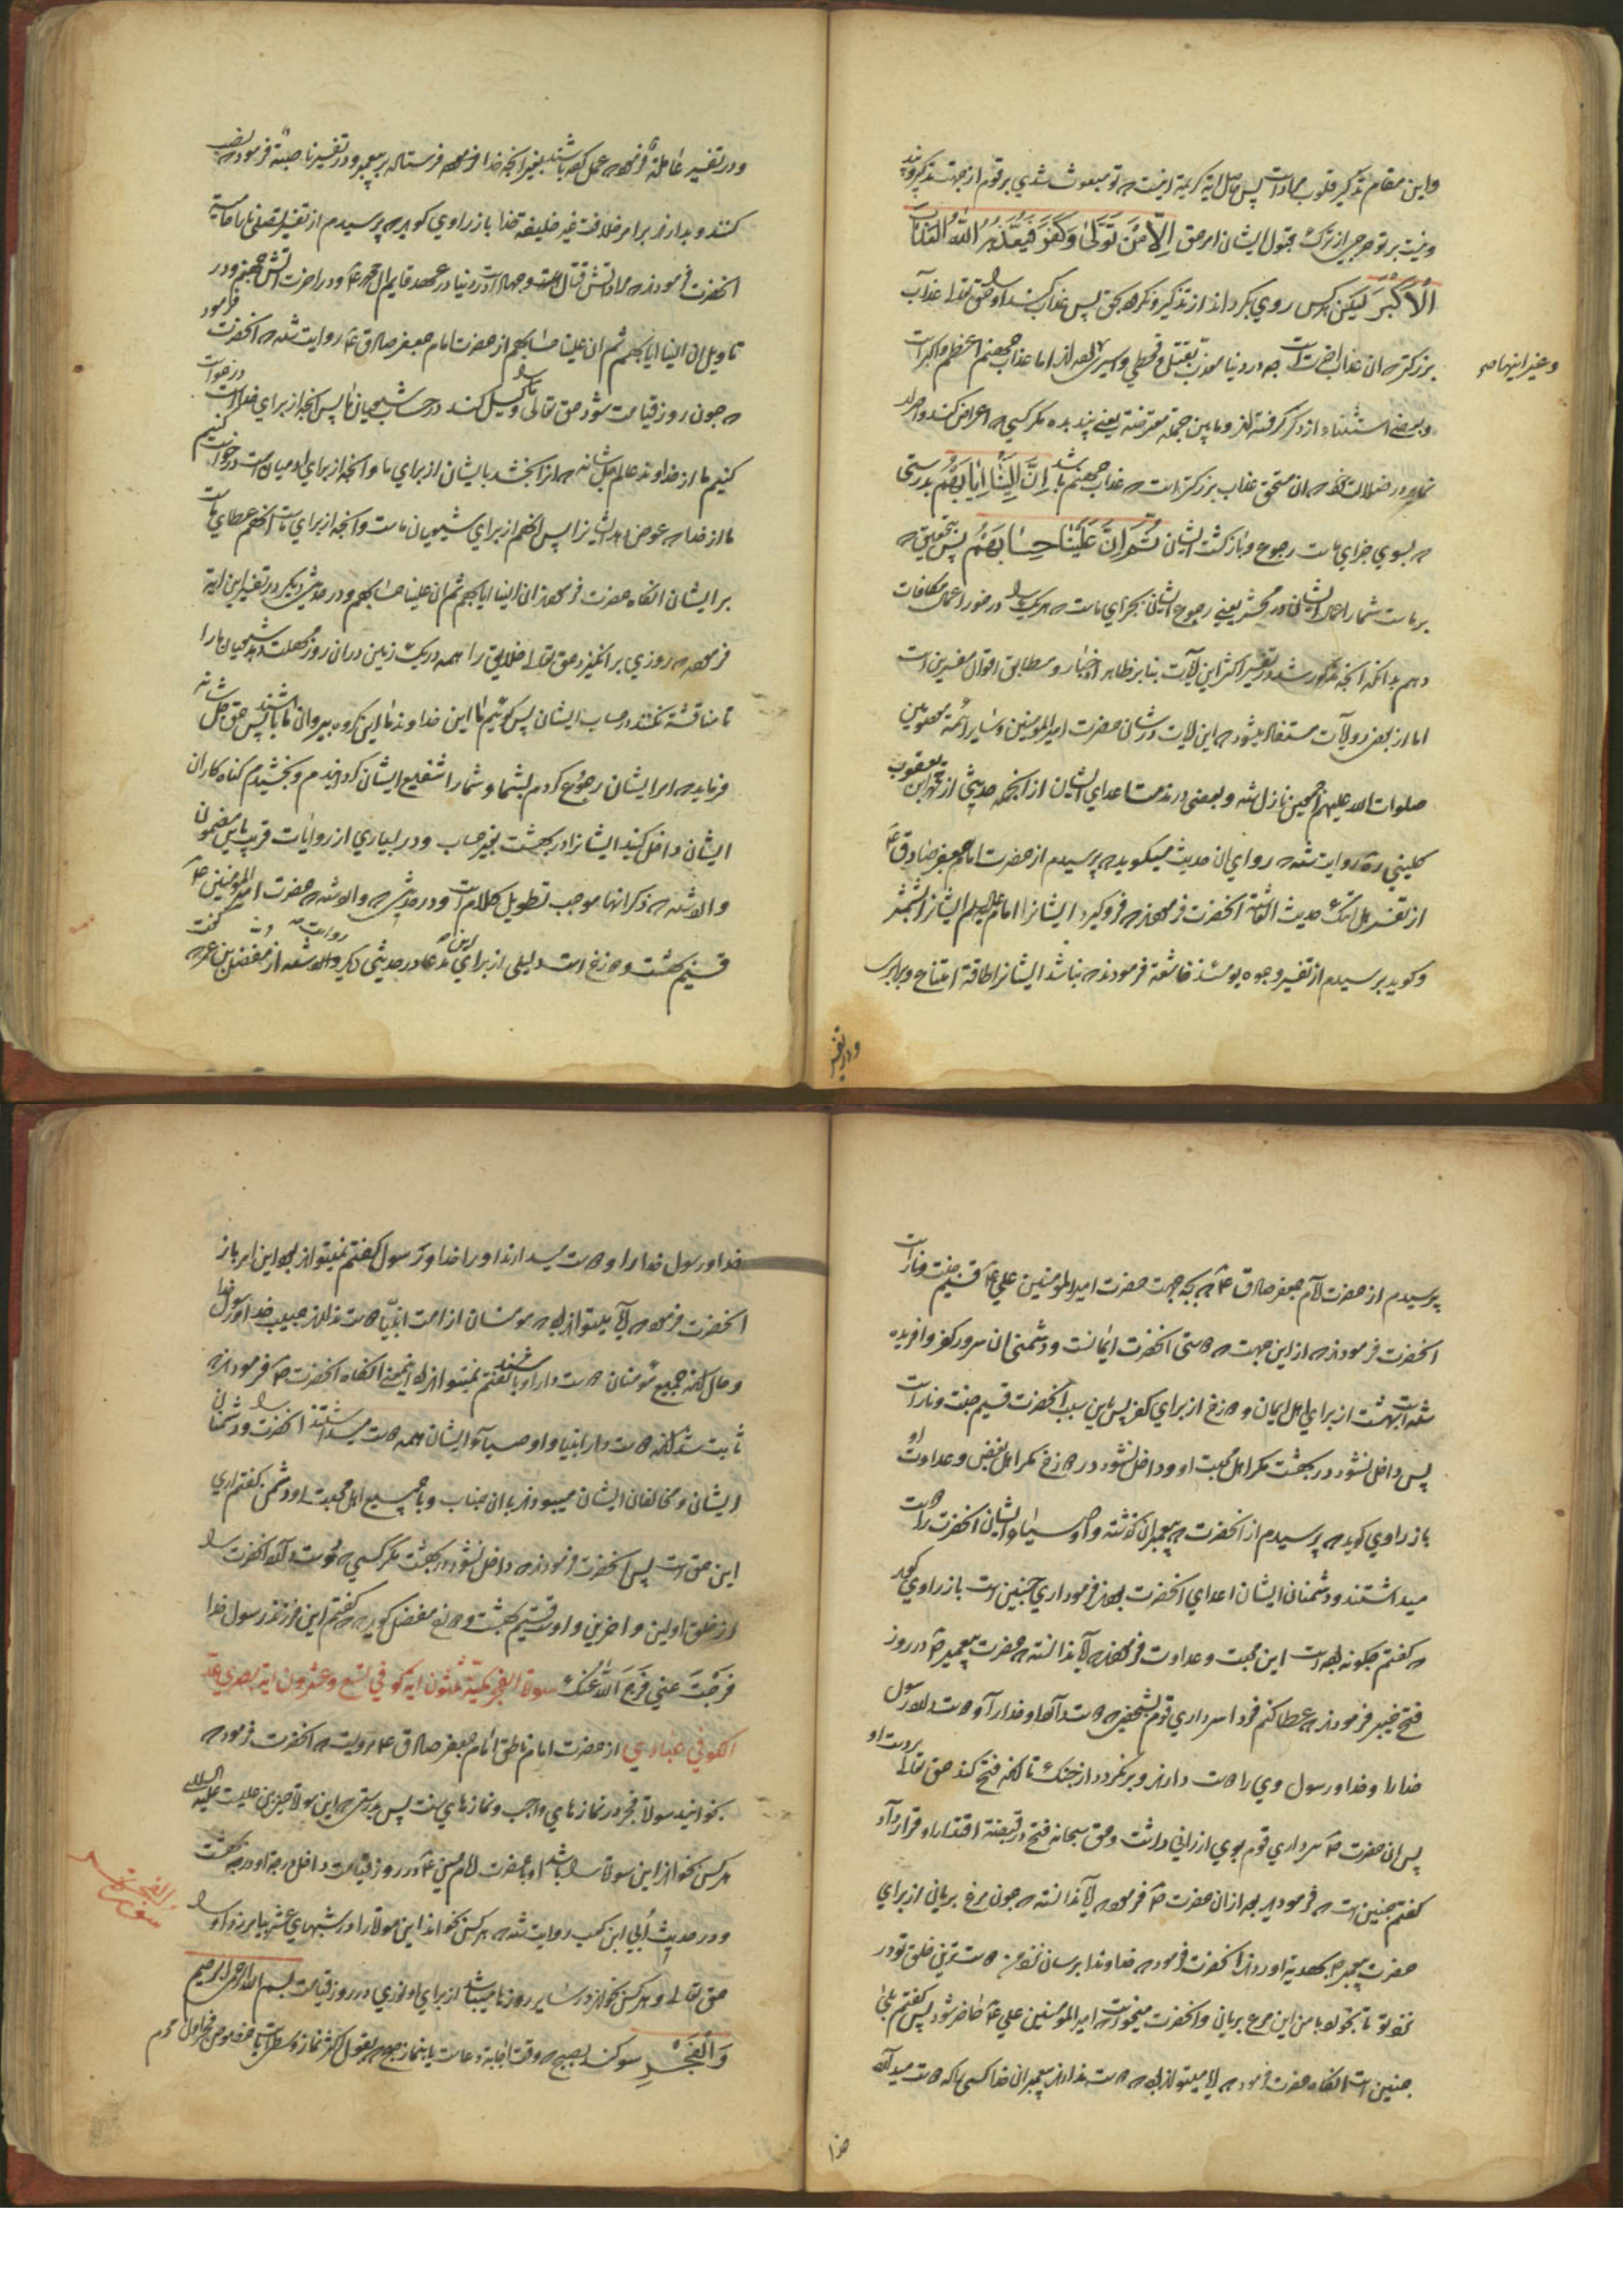 واین مقام تذکیر قلوب مرادست پس حاصل آیه کریمه اینست که تو مبعوث شدی بر قوم از جهت تذکیر و پند
و نیست بر تو حرجی از ترک قبول ایشان امر حق اِلاّ مَن تَوَلّیٰ وَکَفَرَ فَیُعَذِّبُهُ اللّهُ العَذابَ
اَلاَکْبَرَ لیکن هر کس روی بگرداند از تذکیر و نکرود بحق پس عذاب کند او را حق تعالی عذاب
بزرکتر که ان عذاب اخرت است چه در دنیا معذب بقتل و قحطی و اسیری بوده اند اما عذاب جهنم اعظم و اکبر است
وغیر اینها صح
وبعضی استثناء از ذکر گرفته اند و مابین جمله معترضه یعنی پند بده مکر کسی که اعراض کند و اصرار
نماید در ضلالت که ان مستحق عذاب بزرکتر است که عذاب جهنم باشد اِنَّ اِلَیْنا اِیابَهُمْ بدرستی
که بسوی جزای ماست رجوع و بازکشت ایشان ثُمَّ اِنَّ عَلَیْنا حِسابَهُمْ پس بتحقیق که
بر ماست شمار اعمال ایشان در محشر یعنی رجوع ایشان بجزای ماست که هر یک را در خور اعمال مکافات
دهیم بدانکه انچه مذکور شد در تفسیر اکثر این آیات بنا بر ظاهر اخبار و مطابق اقوال مفسرین است
اما از بعض روایات مستفاد میشود که این ایات در شان حضرت امیرالمومنین و سایر ائمه معصومین
صلوات الله علیهم اجمعین نازل شده و بعضی در مذمت اعدای ایشان از انجمله حدیثی از محمد ابن یعقوب
کلینی ره روایت شده که راوی ان حدیث میکوید که پرسیدم از حضرت امام جعفر صادق ع
از تفسیر هل اتیک حدیث الغاشیه انحضرت فرمودند که فروکیرد ایشانرا امام علیه السلم ایشانرا بشمشیر
وکوید پرسیدم از تفسیر وجوه یومئذ خاشعة فرمودند که نباشد ایشانرا طاقة امتناع و برابری
ودر تفسیر
ودر تفسیر عاملة فرموده که عمل کرده باشند بغیر انچه خدا فرموده فرستاده بر پیغمبر ودر تفسیر ناصبة فرموده که نصب
کنند و بدارند برامر خلافت غیر خلیفه خدا باز راوی کوید که پرسیدم از تفسیر تصلی نارا حامیة
انحضرت فرمودند که مراد اتش قتال و جهاد است در دنیا در عهد قایم ال محمد ع ودر اخرت اتش جهنم ودر
تاویل ان الینا ایابهم ثم ان علینا حسابهم از حضرت امام جعفر صادق ع روایت شده که انحضرت فرمود
که چون روز قیامت شود حق تعالی ما را وکیل کند در حساب شیعیان ما پس انچه از برای خداست درخواست
کنیم ما از خداوند عالم جل شانه که انرا بخشد بایشان از برای ما و انچه از برای ادمیان است درخواست کنیم
ما از خدا که عوض دهد ایشانرا پس انهم از برای شیعیان ماست و انچه از برای ماست انهم عطای ماست
بر ایشان انکاه حضرت فرمودند ان الینا ایابهم ثم ان علینا حسابهم ودر حدیثی دیکر در تفسیر این ایة
فرموده که روزی بر انکیزد حق تعالی خلایق را همه در یک زمین در ان روز مهلت دهد شیعیان ما را
تا مناقشه نکنند در حساب ایشان پس کوئیم ما این خداوند ما این کروه پیروان ما باشند پس حق جل شانه
فرماید که امر ایشان رجوع کردم بشما و شما را شفیع ایشان کردانیدم و بخشیدم کناه کاران
ایشان داخل کنید ایشانرا در بهشت بغیر حساب ودر بسیاری از روایات قریب باین مضمون
وارد شده که ذکر انها موجب تطویل کلام است ودر حدیثی که وارد شده حضرت امیرالمومنین ع
قسیم بهشت و دوزخ است دلیلی از برای این مدعا در حدیثی دیکر وارد شده از مفضل بن عمر که گفت
پرسیدم از حضرت امام جعفر صادق ع که بچه جهت حضرت امیرالمومنین علی ع قسیم جنت و نار است
انحضرت فرمودند که از این جهت که دوستی انحضرت ایمانست و دشمنی ان سرور کفر و افریده
شده است بهشت از برای اهل ایمان و دوزخ از برای کفر پس باین سبب انحضرت قسیم جنت و نار است
پس داخل نشود در بهشت مکر اهل محبت او و داخل نشود در دوزخ مکر اهل بغض و عداوت او
باز راوی کوید که پرسیدم از انحضرت که پیغمبران کذشته و اوصیاء ایشان انحضرت را دوست
میداشتند و دشمنان ایشان اعدای انحضرت بودند فرمود اری چنین است باز راوی کوید
که گفتم چکونه بوده است این محبت و عداوت فرمودند که آیا ندانسته که حضرت پیغمبر ص در روز
فتح خیبر فرمودند که عطا کنم فردا سرداری قوم بشخصی که دوست دارد او خدا را و دوست دارد رسول
خدا را و خدا ورسول وی را دوست دارند و برنکردد از جنک تا انکه فتح کند حق تعالی بر دست او
پس ان حضرت ص سرداری قوم بوی ارزانی داشت وحق سبحانه فتح در قبضه اقتدار او قرار داد
گفتم چنین است که فرمودید بعد ازان حضرت ص فرموده که آیا ندانسته که چون مرغ بریانی از برای
حضرت پیغمبر ص بهدیه اوردند انحضرت فرمود که خداوندا برسان بنزد من دوست ترین خلق تو در
نزد تو تا بخورد با من این مرغ بریانی و انحضرت میخواست که امیرالمومنین علی ع حاضر شود پس گفتم بلی
چنین است انکاه حضرت فرمود که آیا میتواند بود که دوست ندارند پیغمبران خدا کسی را که دوست میدارد
خدا
خدا ورسول خدا را و دوست میدارند او را خدا ورسول گفتم نمیتواند بود این امر باز
انحضرت فرموده که آیا میتواند بود که مومنان از امت انبیا دوست ندارند حبیب خدا ورسول خدا
و حال انکه جمیع مومنان دوست دار او باشند گفتم نمیتواند بود اینمعنی انکاه انحضرت ص فرمودند
ثابت شد انکه دوست دار انبیا و اوصیاء ایشان همه دوست میداشتند انحضرت را و دشمنان
ایشان و مخالفان ایشان میبودند بان جناب و با جمیع اهل محبت او دشمن گفتم اری
این حق است پس انحضرت فرمودند که داخل نشود در بهشت مکر کسی که دوست دارد انحضرت را
از خلق اولین و اخرین و اوست قسیم بهشت و دوزخ مفضل کوید که گفتم این فرزند رسول خدا
فَرَّجْتَ عنی فَرَّجَ اللّهُ عَنْکَ سورة الفجر مکیّة ثلثون ایة کوفی تسع و عشرون ایة بصری عدّ
الکوفی عبادی از حضرت امام ناطق امام جعفر صادق ع مرویست که انحضرت فرموده
بخوانید سورة فجر در نمازهای واجب و نمازهای سنت پس بدرستی که این سورة حسین بن علیست علیه السلام
هر کس بخواند این سورة را باشد او با حضرت امام حسین ع در روز قیامت داخل درجه او در بهشت
ودر حدیث اُبَی ابن کعب روایت شده که هر کس بخواند این سورة را در شبهای عشر بیامرزد او را
الفجر
حق تعالی و هر کس بخواند در سایر روزها میباشد از برای او نوری در روز قیامت بسم الله الرحمن الرحیم
وَالْفَجْرِ سوکند بصبح که وقت اجابة دعاست یا بنماز صبح بقول